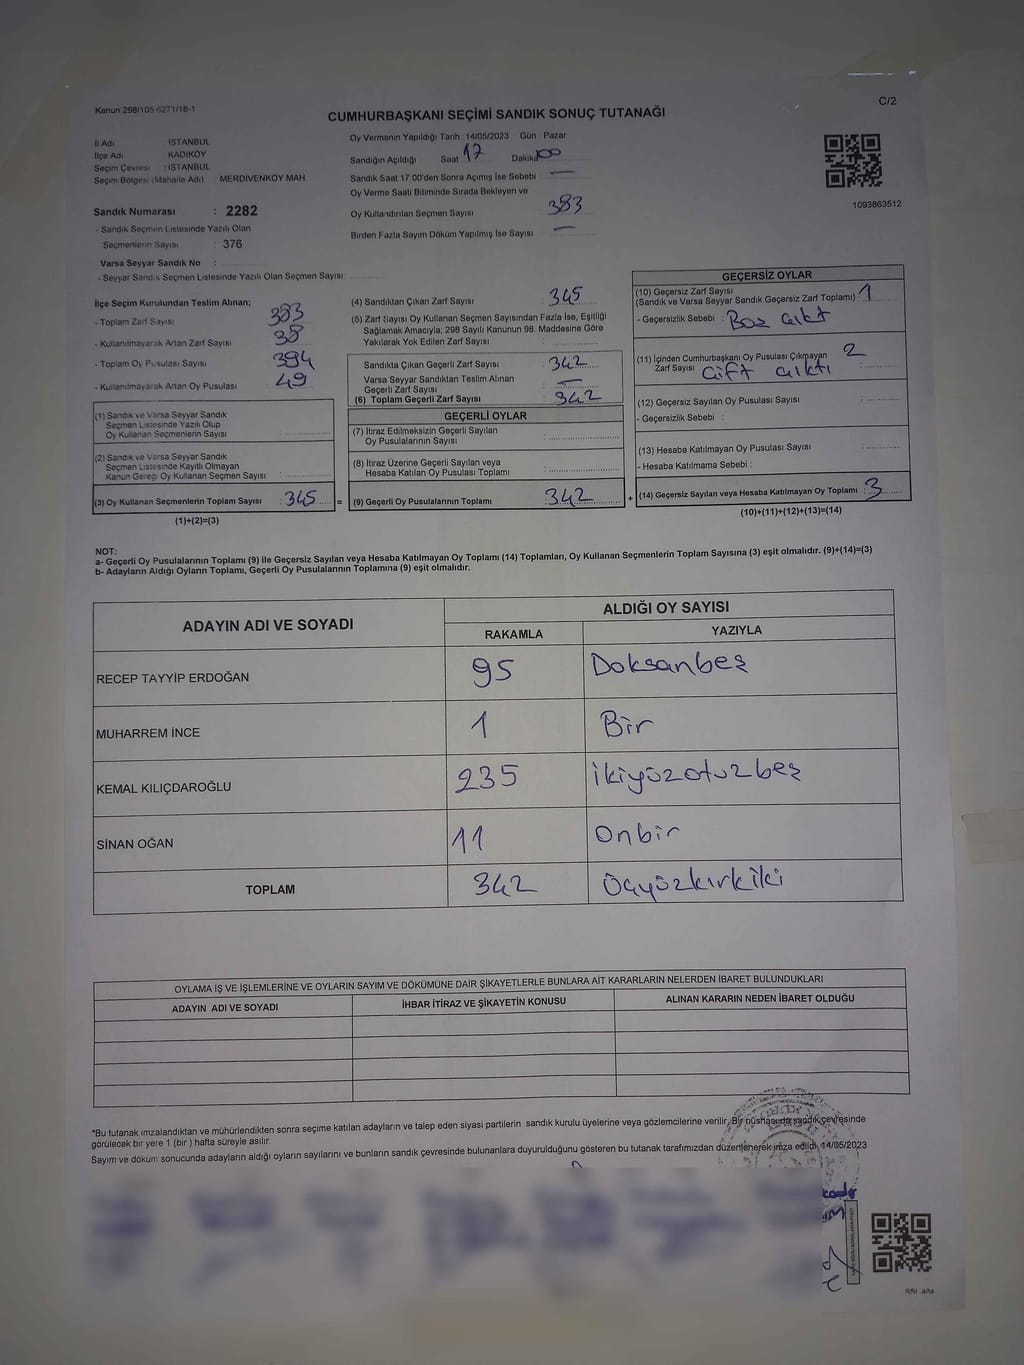 Kanun 298/105 6271/18-1
C/2
CUMHURBAŞKANI SEÇİMİ SANDIK SONUÇ TUTANAĞI
İl Adı İSTANBUL
İlçe Adı KADIKÖY
Seçim Çevresi : İSTANBUL
Seçim Bölgesi (Mahalle Adı) MERDİVENKÖY MAH.
Sandık Numarası : 2282
- Sandık Seçmen Listesinde Yazılı Olan
Seçmenlerin Sayısı : 376
Varsa Seyyar Sandık No :
- Seyyar Sandık Seçmen Listesinde Yazılı Olan Seçmen Sayısı:
Oy Vermenin Yapıldığı Tarih 14/05/2023 Gün Pazar
Sandığın Açıldığı Saat 17 Dakika 00
Sandık Saat 17:00'den Sonra Açımış İse Sebebi —
Oy Verme Saati Bitiminde Sırada Bekleyen ve
Oy Kullandırılan Seçmen Sayısı 383
Birden Fazla Sayım Döküm Yapılmış İse Sayısı —
1093863512
İlçe Seçim Kurulundan Teslim Alınan;
- Toplam Zarf Sayısı 383
- Kullanılmayarak Artan Zarf Sayısı 38
- Toplam Oy Pusulası Sayısı 394
- Kullanılmayarak Artan Oy Pusulası 49
(1) Sandık ve Varsa Seyyar Sandık
Seçmen Listesinde Yazılı Olup
Oy Kullanan Seçmenlerin Sayısı :
(2) Sandık ve Varsa Seyyar Sandık
Seçmen Listesinde Kayıtlı Olmayan
Kanun Gereği Oy Kullanan Seçmen Sayısı :
(3) Oy Kullanan Seçmenlerin Toplam Sayısı : 345 =
(1)+(2)=(3)
(4) Sandıktan Çıkan Zarf Sayısı : 345
(5) Zarf Sayısı Oy Kullanan Seçmen Sayısından Fazla İse, Eşitliği
Sağlamak Amacıyla; 298 Sayılı Kanunun 98. Maddesine Göre
Yakılarak Yok Edilen Zarf Sayısı :
Sandıkta Çıkan Geçerli Zarf Sayısı : 342
Varsa Seyyar Sandıktan Teslim Alınan
Geçerli Zarf Sayısı —
(6) Toplam Geçerli Zarf Sayısı : 342
GEÇERLİ OYLAR
(7) İtiraz Edilmeksizin Geçerli Sayılan
Oy Pusulalarının Sayısı :
(8) İtiraz Üzerine Geçerli Sayılan veya
Hesaba Katılan Oy Pusulası Toplamı :
(9) Geçerli Oy Pusulalarının Toplamı : 342 +
GEÇERSİZ OYLAR
(10) Geçersiz Zarf Sayısı
(Sandık ve Varsa Seyyar Sandık Geçersiz Zarf Toplamı) : 1
- Geçersizlik Sebebi : Boş çıktı
(11) İçinden Cumhurbaşkanı Oy Pusulası Çıkmayan 2
Zarf Sayısı çift çıktı
(12) Geçersiz Sayılan Oy Pusulası Sayısı :
- Geçersizlik Sebebi :
(13) Hesaba Katılmayan Oy Pusulası Sayısı
- Hesaba Katılmama Sebebi :
(14) Geçersiz Sayılan veya Hesaba Katılmayan Oy Toplamı : 3
(10)+(11)+(12)+(13)=(14)
NOT:
a- Geçerli Oy Pusulalarının Toplamı (9) ile Geçersiz Sayılan veya Hesaba Katılmayan Oy Toplamı (14) Toplamları, Oy Kullanan Seçmenlerin Toplam Sayısına (3) eşit olmalıdır. (9)+(14)=(3)
b- Adayların Aldığı Oyların Toplamı, Geçerli Oy Pusulalarının Toplamına (9) eşit olmalıdır.
ADAYIN ADI VE SOYADI ALDIĞI OY SAYISI
RAKAMLA YAZIYLA
RECEP TAYYİP ERDOĞAN 95 Doksanbeş
MUHARREM İNCE 1 Bir
KEMAL KILIÇDAROĞLU 235 ikiyüzotuzbeş
SİNAN OĞAN 11 Onbir
TOPLAM 342 Üçyüzkırkiki
OYLAMA İŞ VE İŞLEMLERİNE VE OYLARIN SAYIM VE DÖKÜMÜNE DAİR ŞİKAYETLERLE BUNLARA AİT KARARLARIN NELERDEN İBARET BULUNDUKLARI
ADAYIN ADI VE SOYADI İHBAR İTİRAZ VE ŞİKAYETİN KONUSU ALINAN KARARIN NEDEN İBARET OLDUĞU
*Bu tutanak imzalandıktan ve mühürlendikten sonra seçime katılan adayların ve talep eden siyasi partilerin sandık kurulu üyelerine veya gözlemcilerine verilir. Bir nüshası da sandık çevresinde
görülecek bir yere 1 (bir) hafta süreyle asılır.
Sayım ve döküm sonucunda adayların aldığı oyların sayılarını ve bunların sandık çevresinde bulunanlara duyurulduğunu gösteren bu tutanak tarafımızdan düzenlenerek imza edildi. 14/05/2023